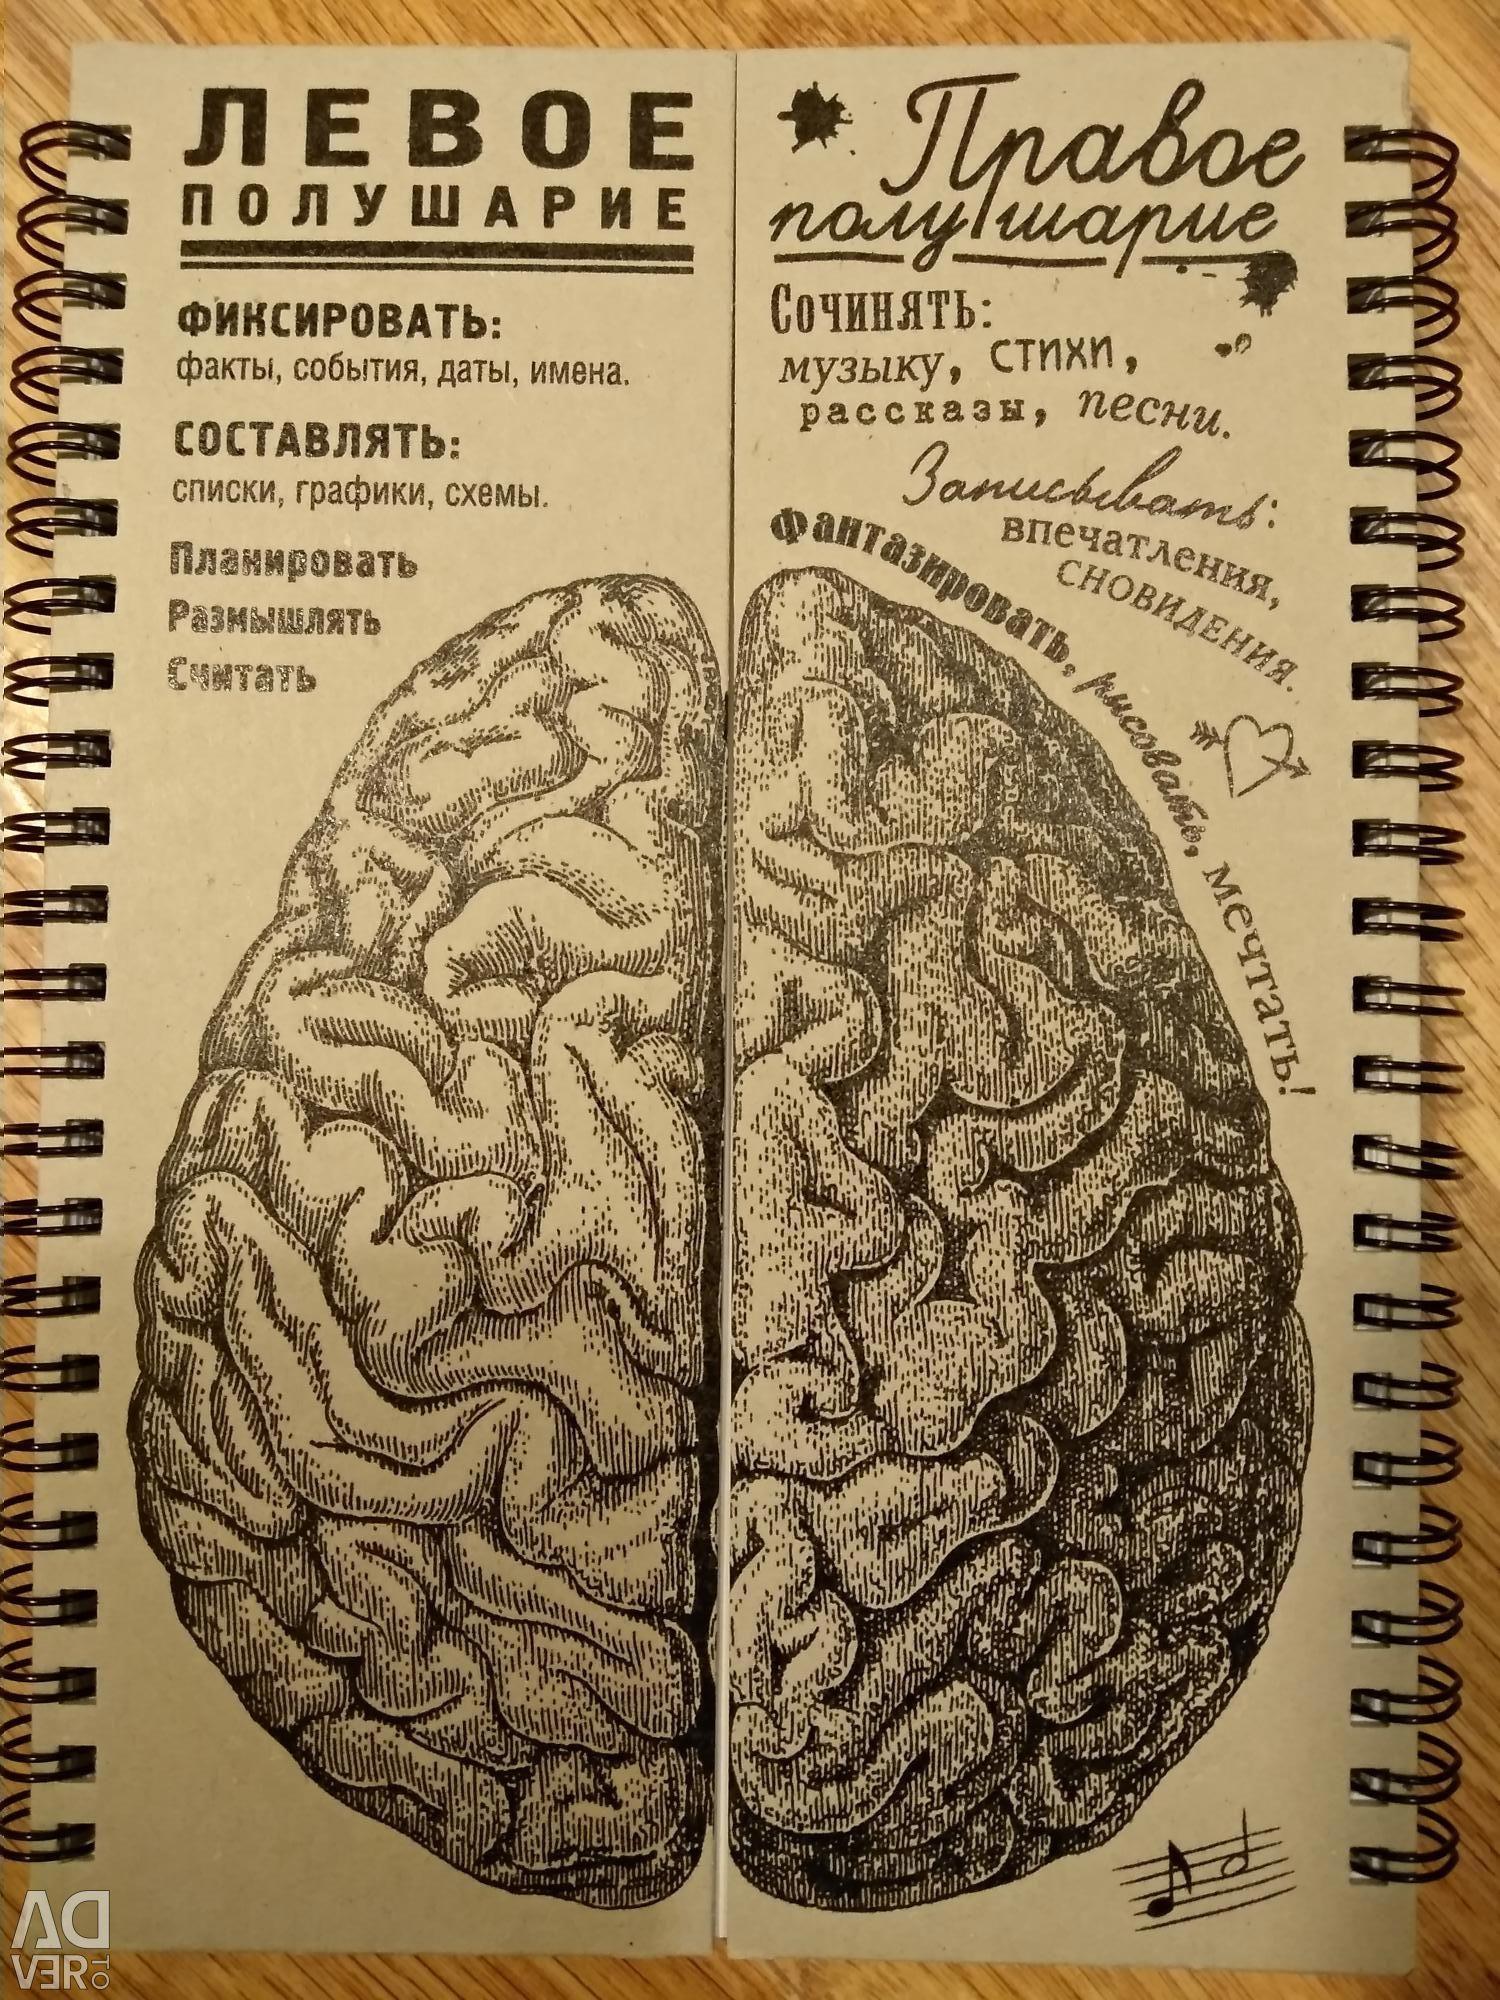 ЛЕВОЕ
ПОЛУШАРИЕ
ФИКСИРОВАТЬ:
факты, события, даты, имена.
СОСТАВЛЯТЬ:
списки, графики, схемы.
Планировать
Размышлять
Считать
Правое
полушарие
Сочинять:
музыку, стихи,
рассказы, песни.
Записывать:
впечатления,
сновидения.
Фантазировать, рисовать, мечтать!
AD
VER TO